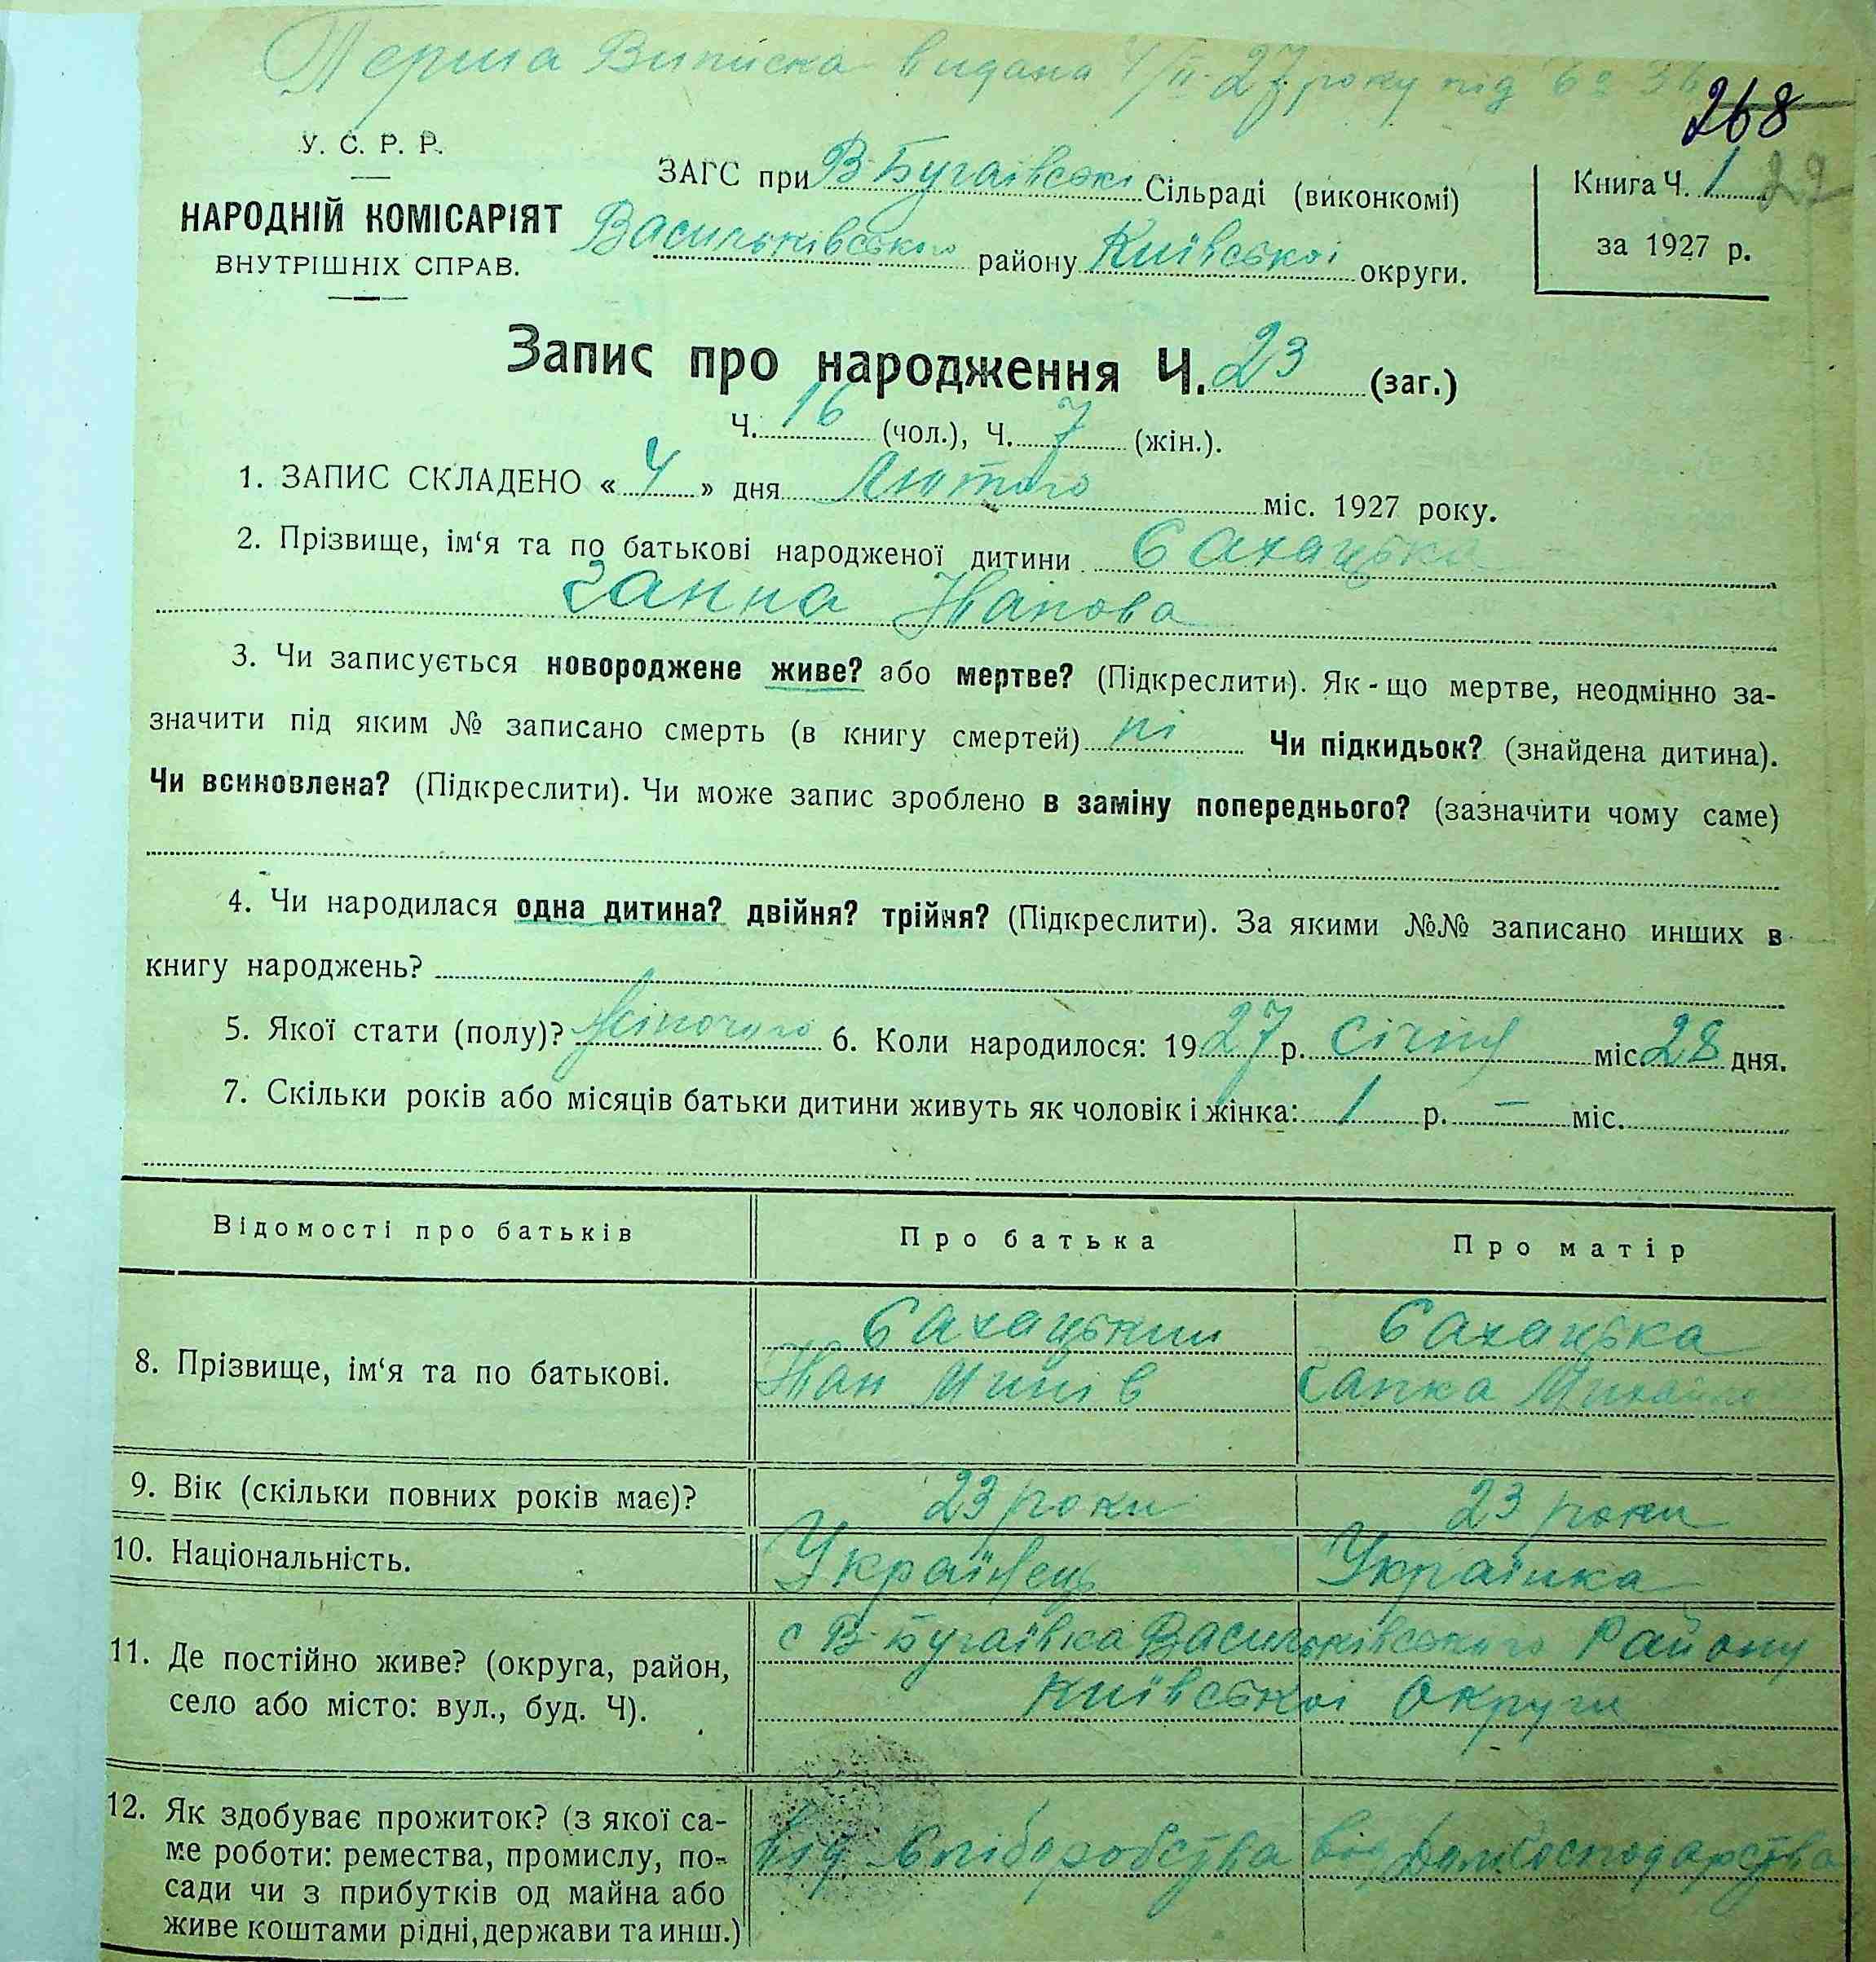 Перша Виписка видана 4/II-27 року під
268
У. С. Р. Р.
НАРОДНІЙ КОМІСАРІЯТ
ВНУТРІШНІХ СПРАВ.
ЗАГС при В-Бугаївські Сільраді (виконкомі)
Васильківського району Київської округи.
Книга Ч. 1 22
за 1927 р.
Запис про народження Ч. 23 (заг.)
Ч. 16 (чол.), Ч. 7 (жін.).
1. ЗАПИС СКЛАДЕНО « 4 » дня Лютого міс. 1927 року.
2. Прізвище, ім‘я та по батькові народженої дитини Сахацька
Ганна Іванова
3. Чи записується новороджене живе? або мертве? (Підкреслити). Як-що мертве, неодмінно за-
значити під яким № записано смерть (в книгу смертей) ні Чи підкидьок? (знайдена дитина).
Чи всиновлена? (Підкреслити). Чи може запис зроблено в заміну попереднього? (зазначити чому саме)
4. Чи народилася одна дитина? двійня? трійня? (Підкреслити). За якими №№ записано инших в
книгу народжень?
5. Якої стати (полу)? Жіночого 6. Коли народилося: 1927 р. Січня міс. 28 дня.
7. Скільки років або місяців батьки дитини живуть як чоловік і жінка: 1 р. — міс.
Відомості про батьків Про батька Про матір
8. Прізвище, ім‘я та по батькові.
Сахацький
Іван Минів
Сахацька
Ганка
9. Вік (скільки повних років має)? 23 роки 23 роки
10. Національність. Українець Українка
11. Де постійно живе? (округа, район,
село або місто: вул., буд. Ч).
с В-Бугаївка Васильківського Району
Київської Округи
12. Як здобуває прожиток? (з якої са-
ме роботи: ремества, промислу, по-
сади чи з прибутків од майна або
живе коштами рідні, держави та инш.)
від хліборобства від Домгосподарства